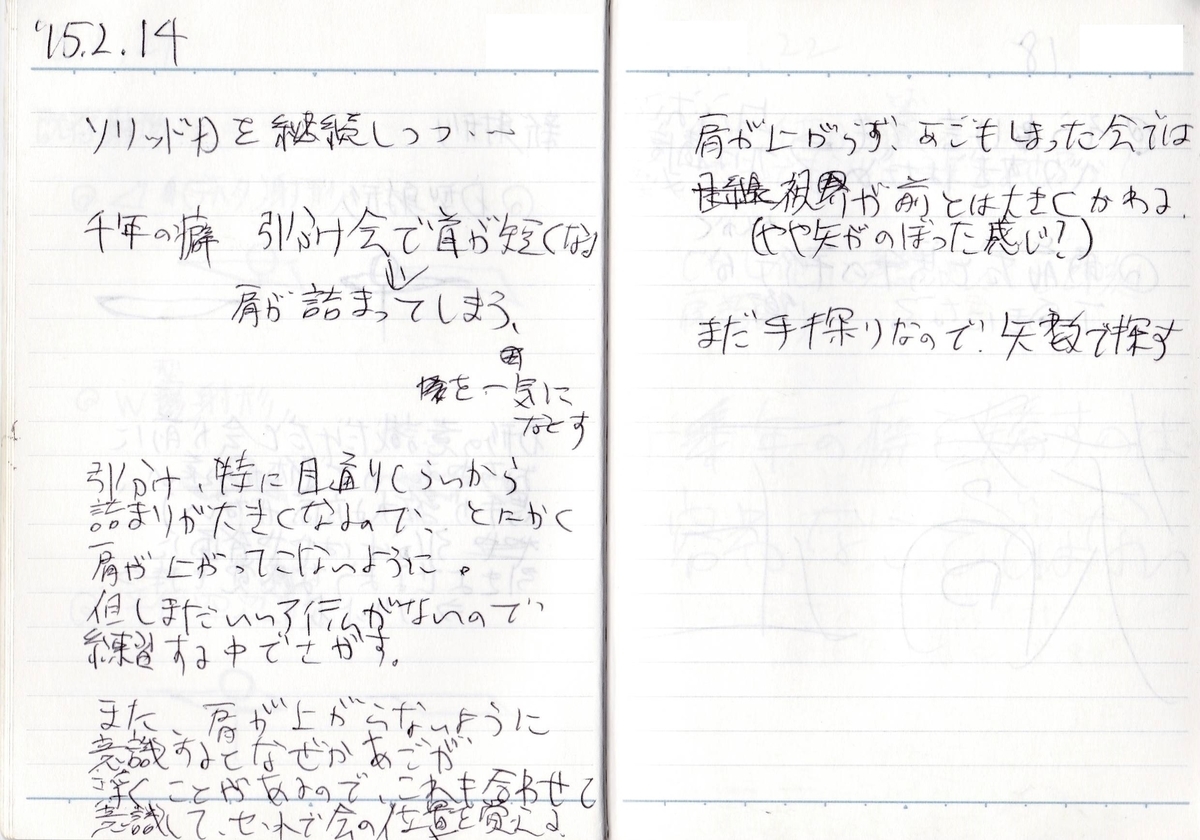 '15.2.14
ソリッド力を継続しつつ…
千年の癖 引分け会で首が短くなる
肩が詰まってしまう、
を一気に
なおす
引分け、特に目通りくらいから
詰まりが大きくなるので、とにかく
肩が上がってこないように。
但しまだいいがないので
練習する中でさがす。
また、肩が上がらないように
意識するとなぜかあごが
浮くことがあるので、これも合わせて
意識して、で会の位置を覚える
肩が上がらず、あごもしまった会では
視界が前とは大きくかわる。
(やや矢がのぼった感じ?)
まだ手探りなので、矢数で探す